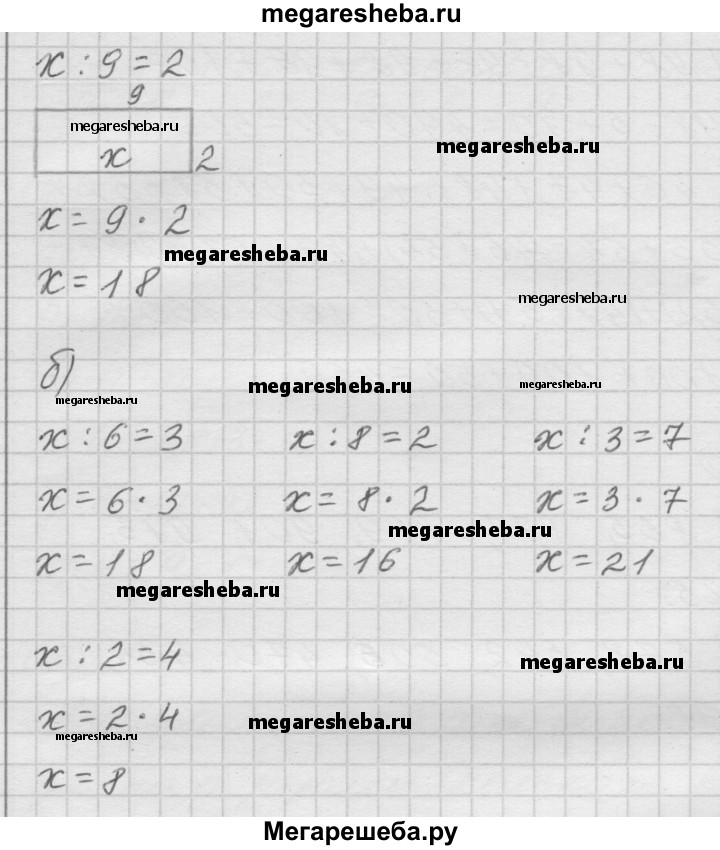 megaresheba.ru
x : 9 = 2
9
megaresheba.ru
x 2
megaresheba.ru
x = 9 · 2
megaresheba.ru
x = 18
megaresheba.ru
б)
megaresheba.ru
megaresheba.ru
megaresheba.ru
x : 6 = 3 x : 8 = 2 x : 3 = 7
x = 6 · 3 x = 8 · 2 x = 3 · 7
megaresheba.ru
x = 18 x = 16 x = 21
megaresheba.ru
x : 2 = 4
megaresheba.ru
x = 2 · 4
megaresheba.ru
megaresheba.ru
x = 8
Мегарешеба.ру